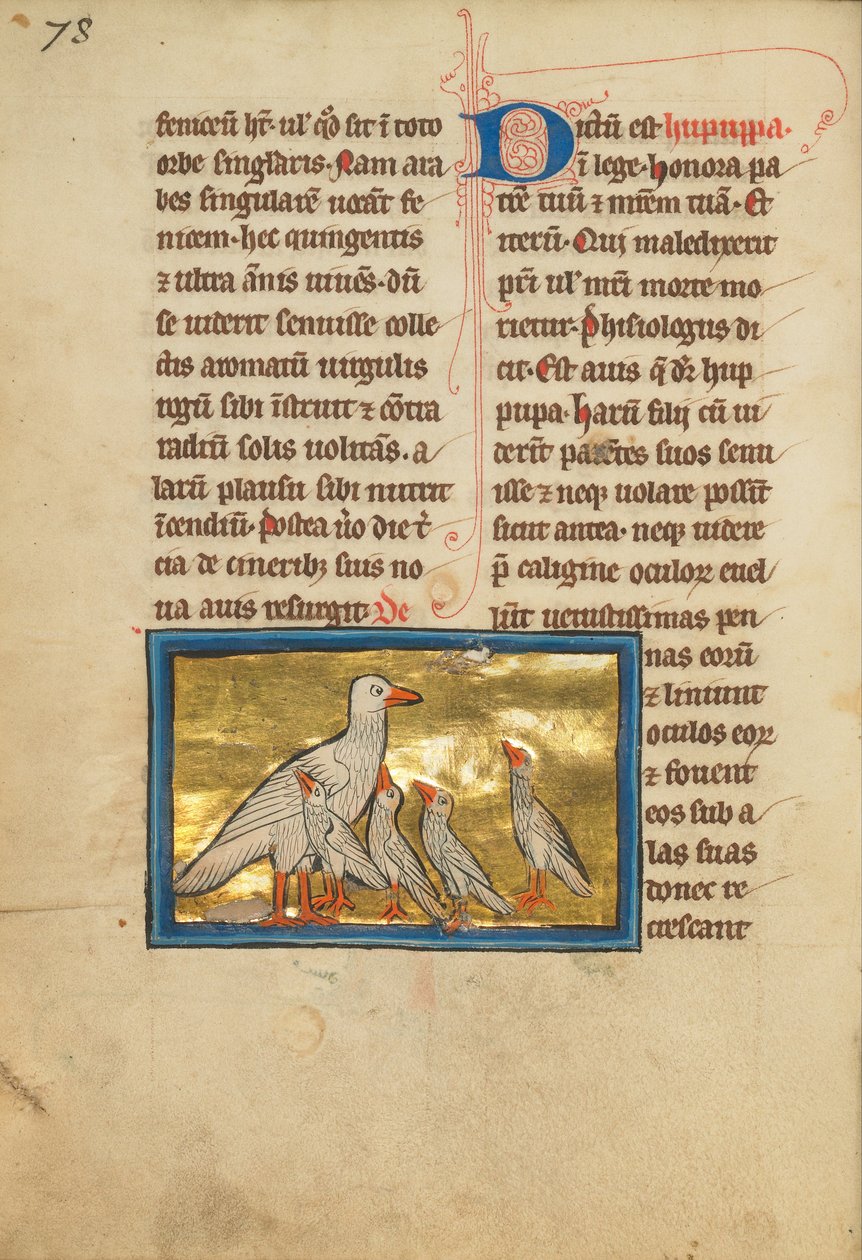 78
feniceū ħt̄· ul' q̊d sit ī toto
orbe singl'aris· Nam ara
bes singularē uocāt fe
nicem· hec quingentis
⁊ ultra ānis uiuēs· dū
se uiderit senuisse colle
ctis aromatū uirgulis
rogū sibi īstruit ⁊ cōtra
radiū solis uolitās· a
larū plausu sibi nutrit
īcendiū· Postea ūo die t̄
cia de cineribꝫ suis no
ua auis resurgit· De
Dictū est hupuppa·
ī lege· honora pa
trē tuū ⁊ mr̄em tuā· Et
iterū· Qui maledixerit
pr̄i ul' mr̄i morte mo
rietur· Phisiologus di
cit· Est auis q̄ dr̄ hup
pupa· harū filij cū ui
derīt parētes suos senu
isse ⁊ neqꝫ uolare possīt
sicut antea· neqꝫ uidere
p̄ caligine oculoꝝ euel
lūt uetustissimas pen
nas eorū
⁊ liniunt
oculos eoꝝ
⁊ fouent
eos sub a
las suas
donec re
crescant